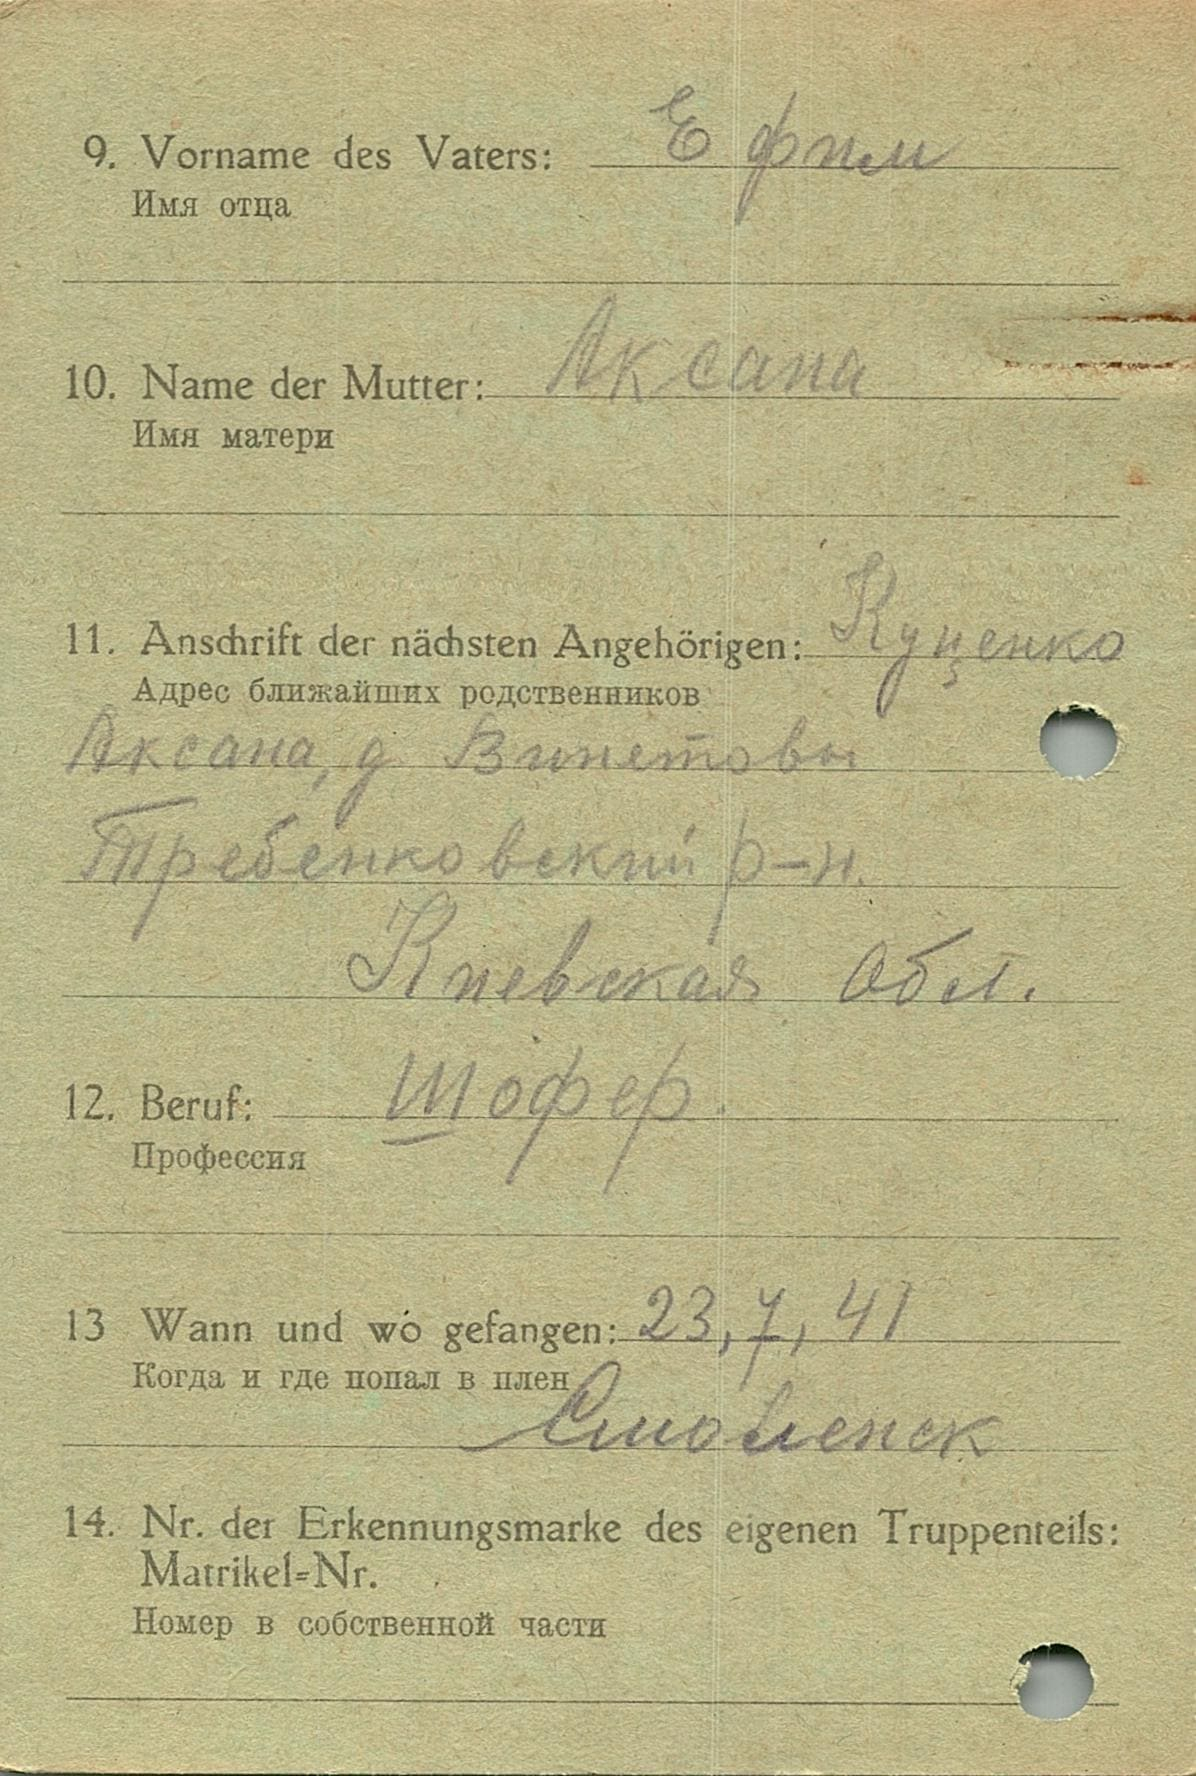 9. Vorname des Vaters: Ефим
Имя отца
10. Name der Mutter: Аксана
Имя матери
11. Anschrift der nächsten Angehörigen: Куценко
Адрес ближайших родственников
Аксана, д. Винетовы
Требенковский р-н.
Киевская Обл.
12. Beruf: Шофер.
Профессия
13 Wann und wo gefangen: 23,7,41
Когда и где попал в плен
Смоленск
14. Nr. der Erkennungsmarke des eigenen Truppenteils:
Matrikel=Nr.
Номер в собственной части